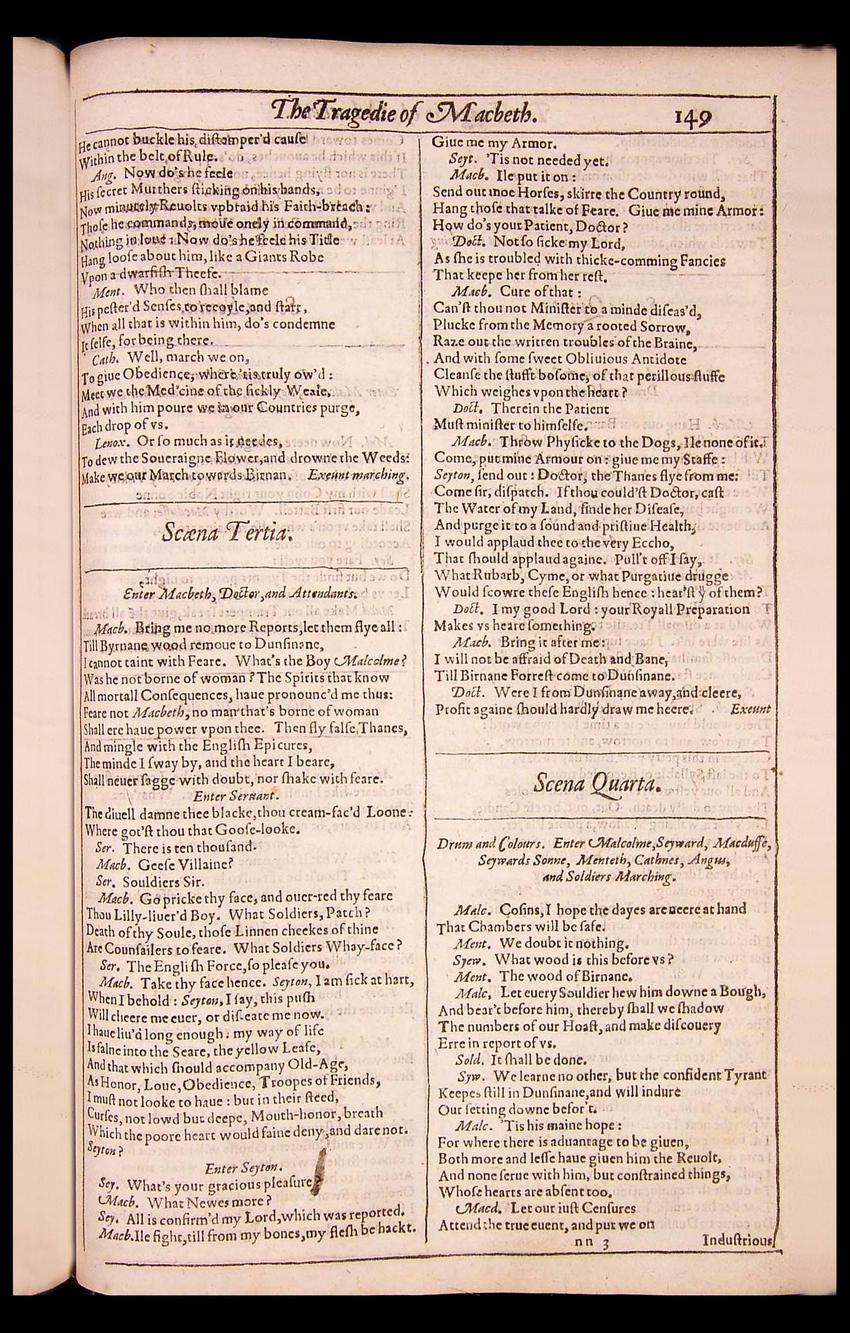 The Tragedie of Macbeth.
149
He cannot buckle his distemper'd cause
Within the belt of Rule.
Ang. Now do's he feele
His secret Murthers sticking on his hands,
Now minutely Reuolts vpbraid his Faith-breach:
Those he commands, moue onely in command,
Nothing in loue: Now do's he feele his Title
Hang loose about him, like a Giants Robe
Vpon a dwarfish Theefe.
Ment. Who then shall blame
His pester'd Senses to recoyle, and start,
When all that is within him, do's condemne
It selfe, for being there.
Cath. Well, march we on,
To giue Obedience, where 'tis truly ow'd:
Meet we the Med'cine of the sickly Weale,
And with him poure we in our Countries purge,
Each drop of vs.
Lenox. Or so much as it needes,
To dew the Soueraigne Flower, and drowne the Weeds:
Make we our March towards Birnan. Exeunt marching.
Scæna Tertia.
Enter Macbeth, Doctor, and Attendants.
Macb. Bring me no more Reports, let them flye all:
Till Byrnane wood remoue to Dunsinane,
I cannot taint with Feare. What's the Boy Malcolme?
Was he not borne of woman? The Spirits that know
All mortall Consequences, haue pronounc'd me thus:
Feare not Macbeth, no man that's borne of woman
Shall ere haue power vpon thee. Then fly false Thanes,
And mingle with the English Epicures,
The minde I sway by, and the heart I beare,
Shall neuer sagge with doubt, nor shake with feare.
Enter Seruant.
The diuell damne thee blacke, thou cream-fac'd Loone:
Where got'st thou that Goose-looke.
Ser. There is ten thousand.
Macb. Geese Villaine?
Ser. Souldiers Sir.
Macb. Go pricke thy face, and ouer-red thy feare
Thou Lilly-liuer'd Boy. What Soldiers, Patch?
Death of thy Soule, those Linnen cheekes of thine
Are Counsailers to feare. What Soldiers Whay-face?
Ser. The English Force, so please you.
Macb. Take thy face hence. Seyton, I am sick at hart,
When I behold: Seyton, I say, this push
Will cheere me euer, or dis-eate me now.
I haue liu'd long enough: my way of life
Is falne into the Seare, the yellow Leafe,
And that which should accompany Old-Age,
As Honor, Loue, Obedience, Troopes of Friends,
I must not looke to haue: but in their steed,
Curses, not lowd but deepe, Mouth-honor, breath
Which the poore heart would faine deny, and dare not.
Seyton?
Enter Seyton.
Sey. What's your gracious pleasure?
Macb. What Newes more?
Sey. All is confirm'd my Lord, which was reported.
Macb. Ile fight, till from my bones, my flesh be hackt.
Giue me my Armor.
Seyt. 'Tis not needed yet.
Macb. Ile put it on:
Send out moe Horses, skirre the Country round,
Hang those that talke of Feare. Giue me mine Armor:
How do's your Patient, Doctor?
Doct. Not so sicke my Lord,
As she is troubled with thicke-comming Fancies
That keepe her from her rest.
Macb. Cure of that:
Can'st thou not Minister to a minde diseas'd,
Plucke from the Memory a rooted Sorrow,
Raze out the written troubles of the Braine,
And with some sweet Obliuious Antidote
Cleanse the stufft bosome, of that perillous stuffe
Which weighes vpon the heart?
Doct. Therein the Patient
Must minister to himselfe.
Macb. Throw Physicke to the Dogs, Ile none of it.
Come, put mine Armour on: giue me my Staffe:
Seyton, send out: Doctor, the Thanes flye from me:
Come sir, dispatch. If thou could'st Doctor, cast
The Water of my Land, finde her Disease,
And purge it to a sound and pristiue Health,
I would applaud thee to the very Eccho,
That should applaud againe. Pull't off I say,
What Rubarb, Cyme, or what Purgatiue drugge
Would scowre these English hence: hear'st y of them?
Doct. I my good Lord: your Royall Preparation
Makes vs heare something.
Macb. Bring it after me:
I will not be affraid of Death and Bane,
Till Birnane Forrest come to Dunsinane.
Doct. Were I from Dunsinane away, and cleere,
Profit againe should hardly draw me heere. Exeunt
Scena Quarta.
Drum and Colours. Enter Malcolme, Seyward, Macduffe,
Seywards Sonne, Menteth, Cathnes, Angus,
and Soldiers Marching.
Malc. Cosins, I hope the dayes are neere at hand
That Chambers will be safe.
Ment. We doubt it nothing.
Syew. What wood is this before vs?
Ment. The wood of Birnane.
Malc. Let euery Souldier hew him downe a Bough,
And bear't before him, thereby shall we shadow
The numbers of our Hoast, and make discouery
Erre in report of vs.
Sold. It shall be done.
Syw. We learne no other, but the confident Tyrant
Keepes still in Dunsinane, and will indure
Our setting downe befor't.
Malc. 'Tis his maine hope:
For where there is aduantage to be giuen,
Both more and lesse haue giuen him the Reuolt,
And none serue with him, but constrained things,
Whose hearts are absent too.
Macd. Let our iust Censures
Attend the true euent, and put we on
nn 3
Industrious